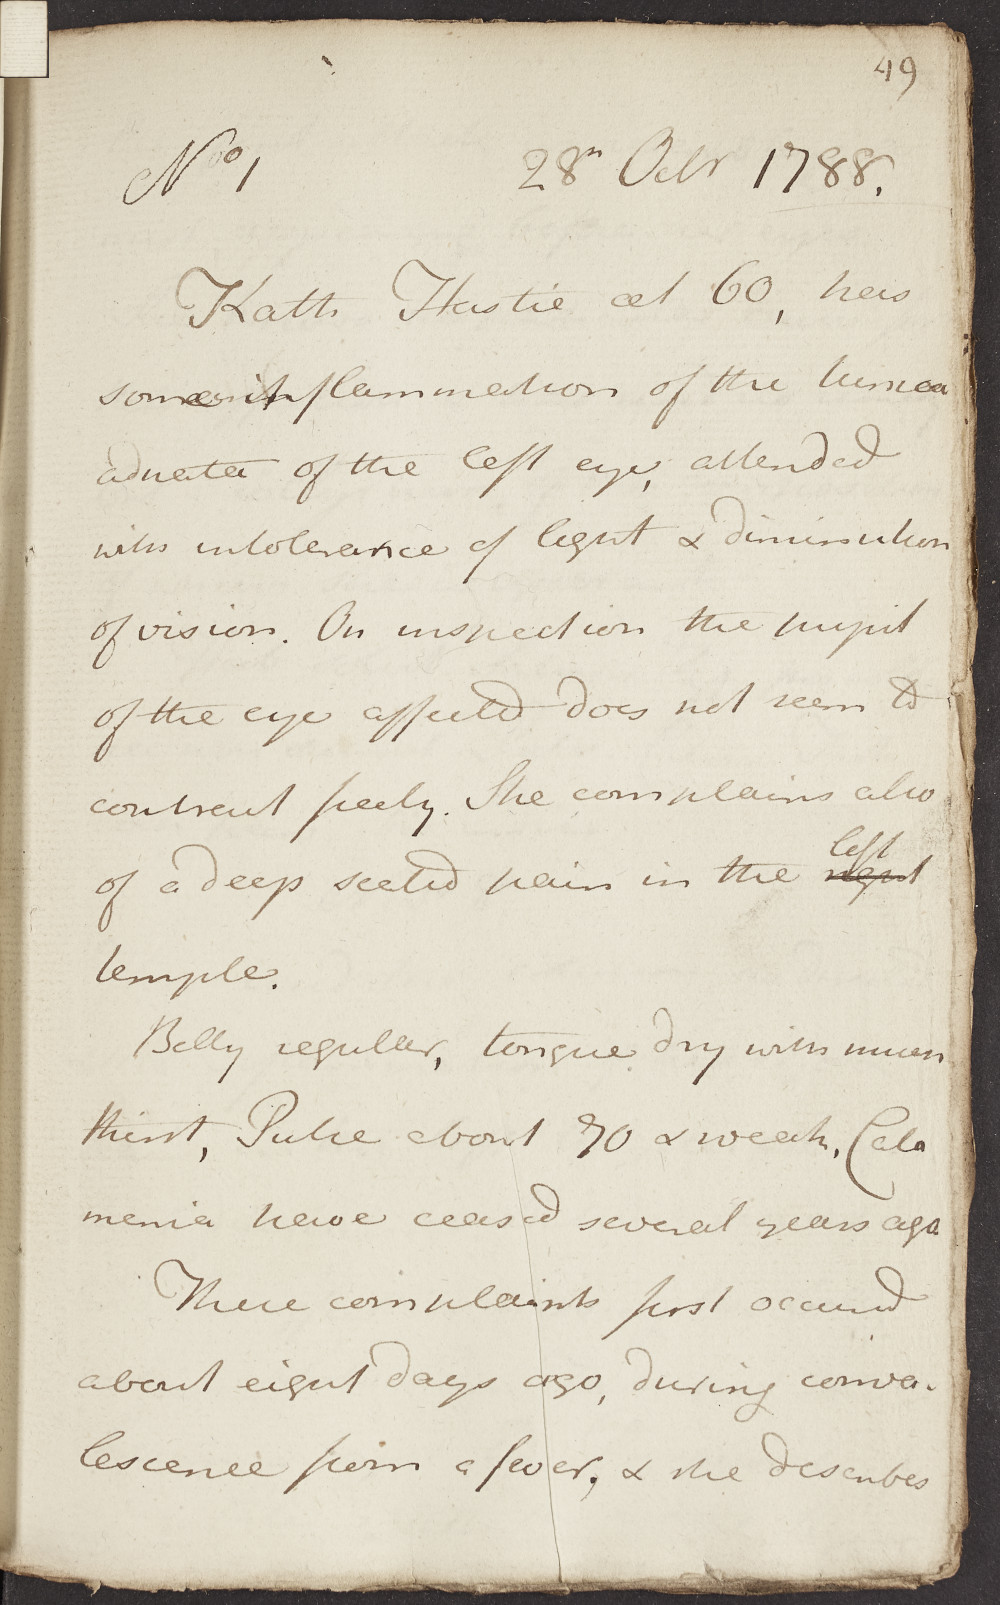 49
No 1 28th Octr 1788.
Kath Hastie aet 60, has
some inflammation of the tunica
adnata of the left eye, attended
with intolerance of light & diminution
of vision. On inspection the pupil
of the eye affected does not seem to
contract freely. She complains also
left
of a deep seated pain in the right
temple.
Belly regular, tongue dry with much
thirst, Pulse about 70 & weak, Cata
menia have ceased several years ago
These complaints first occurred
about eight days ago, during conva-
lescence from a fever, & she describes